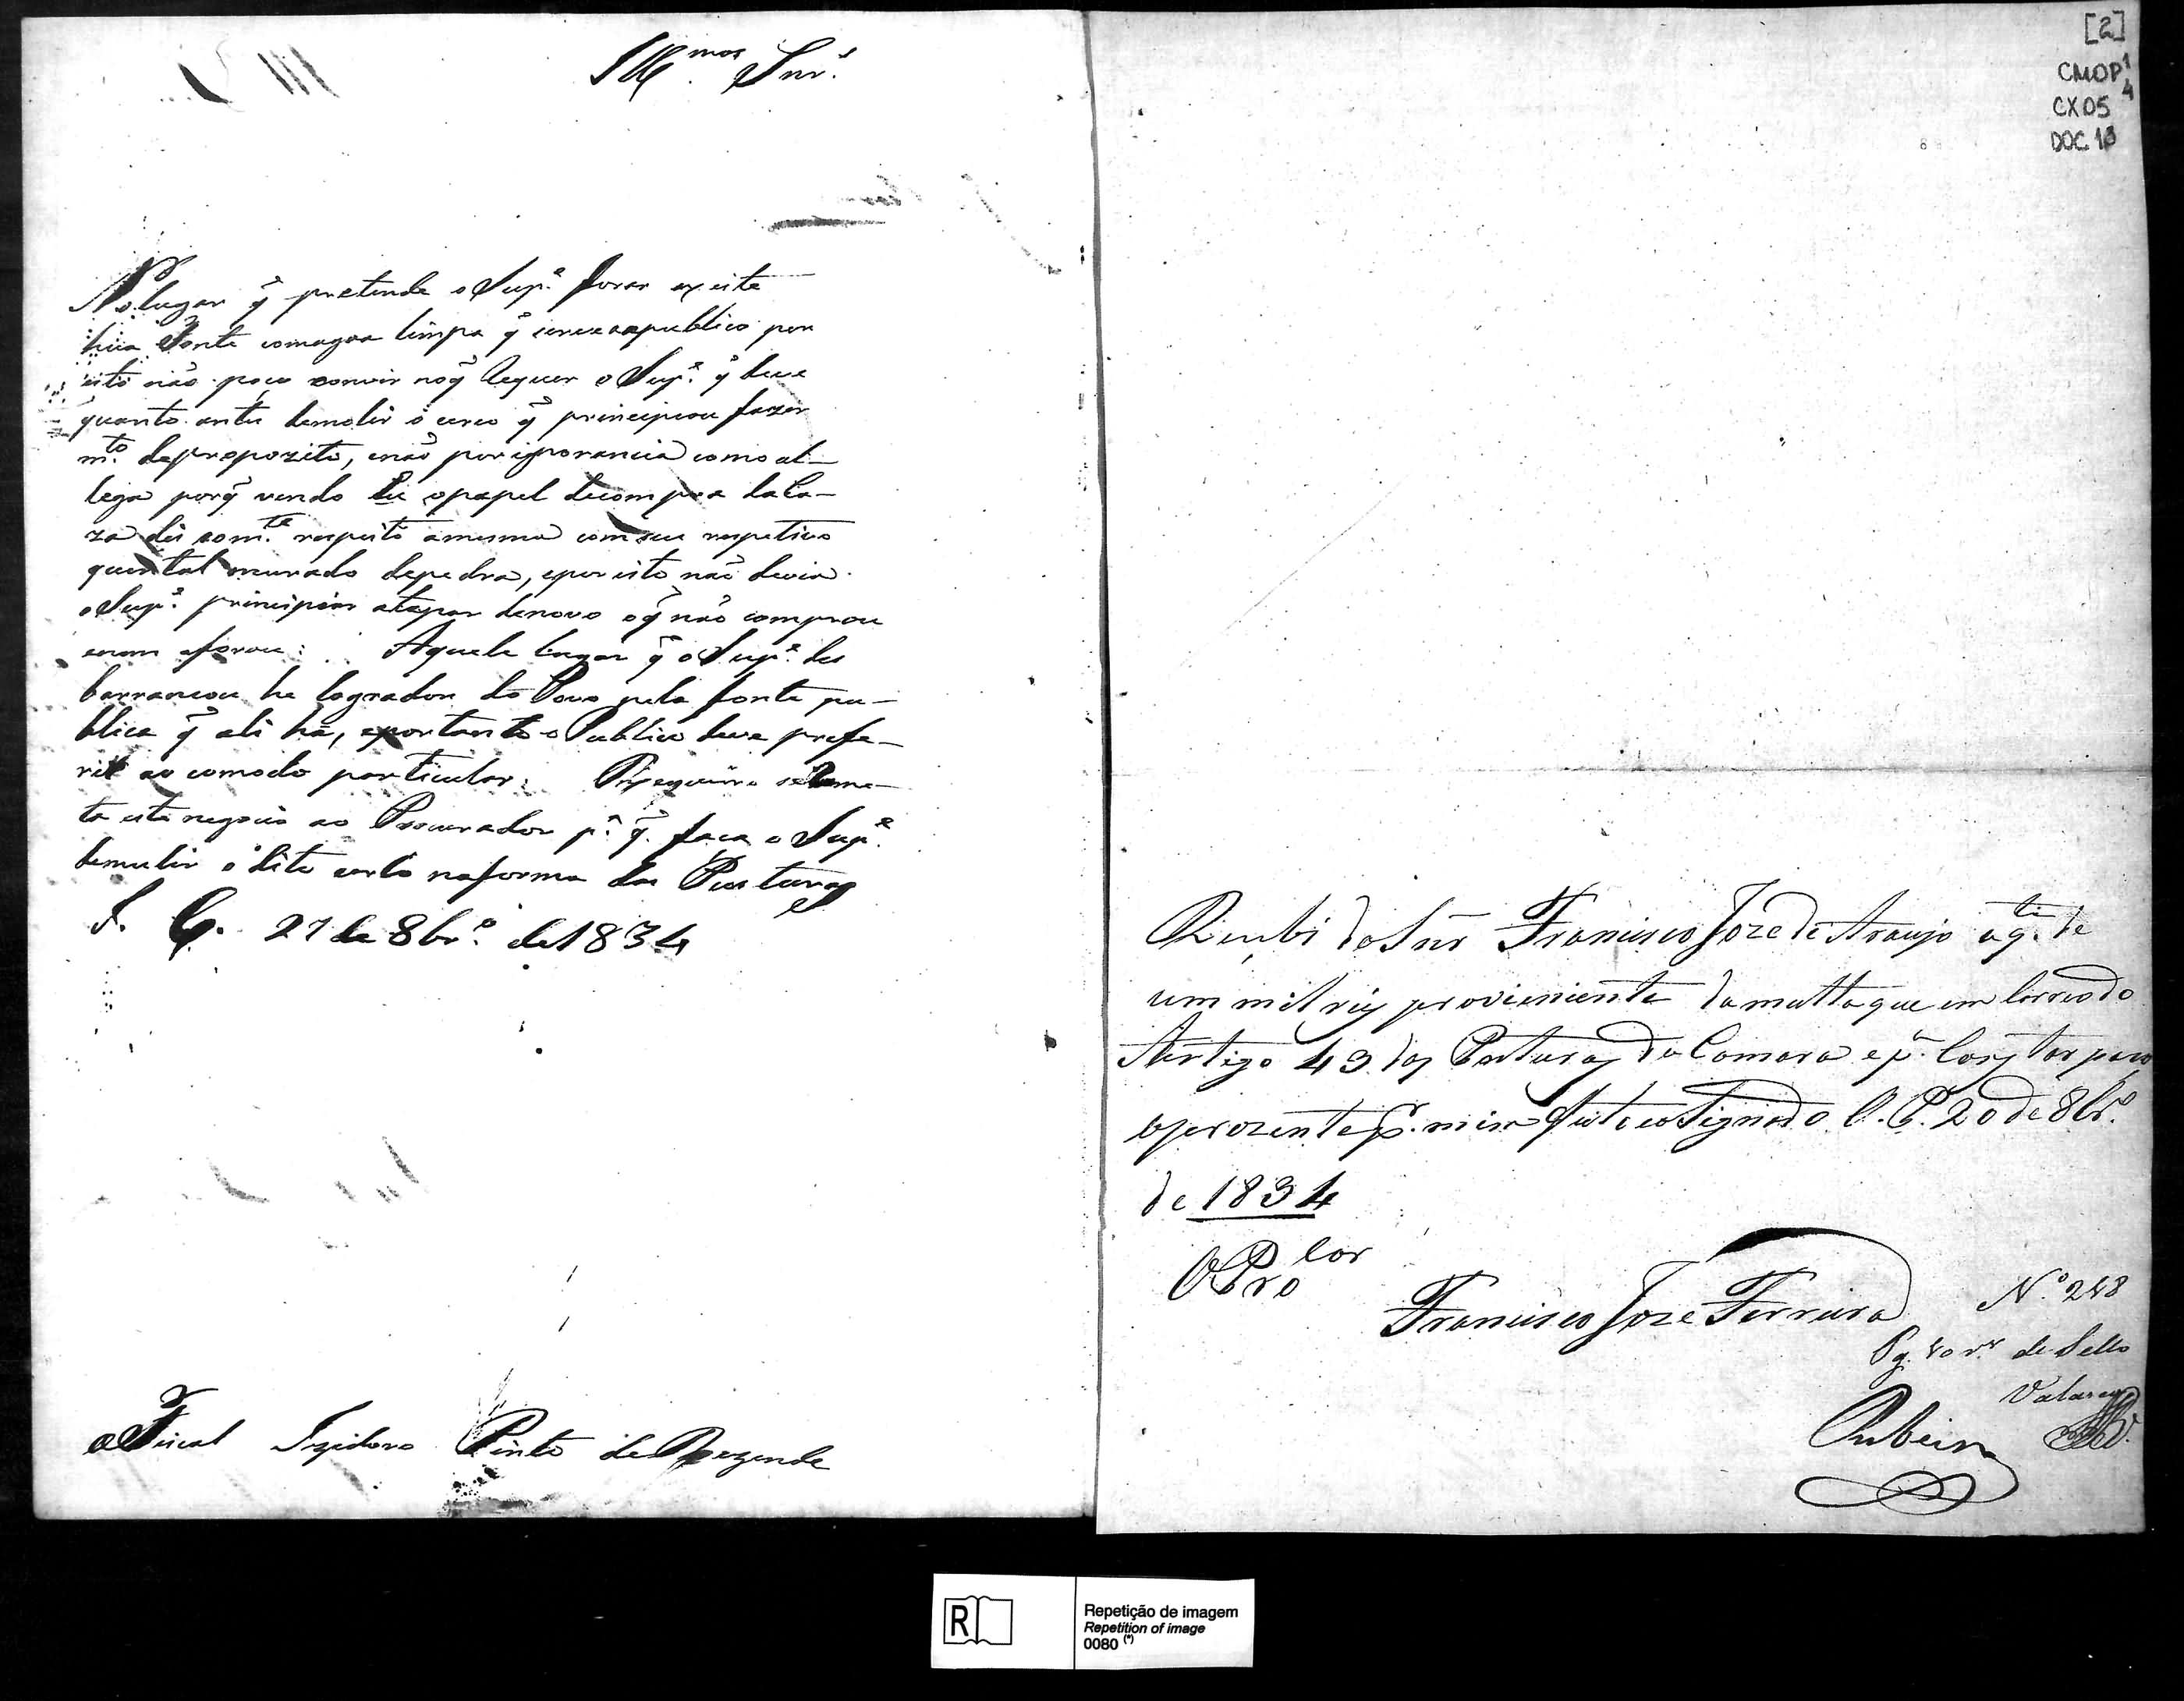 Ill.mos Snr.s
No lugar q̃ pretende o Sup.e forar existe
hũa Fonte com agoa limpa q̃ serve ao publico por
isto não poço convir no q̃ Requer o Sup.e q̃ deve
quanto antes demolir o cerco q̃ principiou fazer
m.to de propozito, e não por ignorancia como al-
lega porq̃ vendo Eu o papel de compra da Ca-
za diz som.te respeito a mesma com seu respetivo
quintal murado de pedra, e por isto não devia
o Sup.e principiar a tapar de novo o q̃ não comprou
e nem aforou: Aquele lugar q̃ o Sup.e des
barrancou he logrador do Povo pela fonte pu-
blica q̃ ali há, e portanto o Publico deve prefe-
rir ao comodo particular: Requeiro se Reme-
ta este negocio ao Procurador p.a q̃ faça o Sup.e
demulir o dito cerco na forma das Posturas
S. C. 21 de 8br.o de 1834
o Fiscal Izidoro Pinto de Rezende
[2]
CMOP 1
4
CX 05
DOC. 13
Recebi do Snr Francisco Joze de Araujo a q.tia de
um mil reis proveniente da multa que em correo do
Artigo 43 das Posturas da Camara e p.a Constar paço
o prezente p.r mim feito e asignado O. P. 20 de 8br.o
de 1834
O Pro.dor
Francisco Joze Ferreira
N.o 248
Pg. 40 r.s de Sello
Ribeiro
R
Repetição de imagem
Repetition of image
0080 (*)